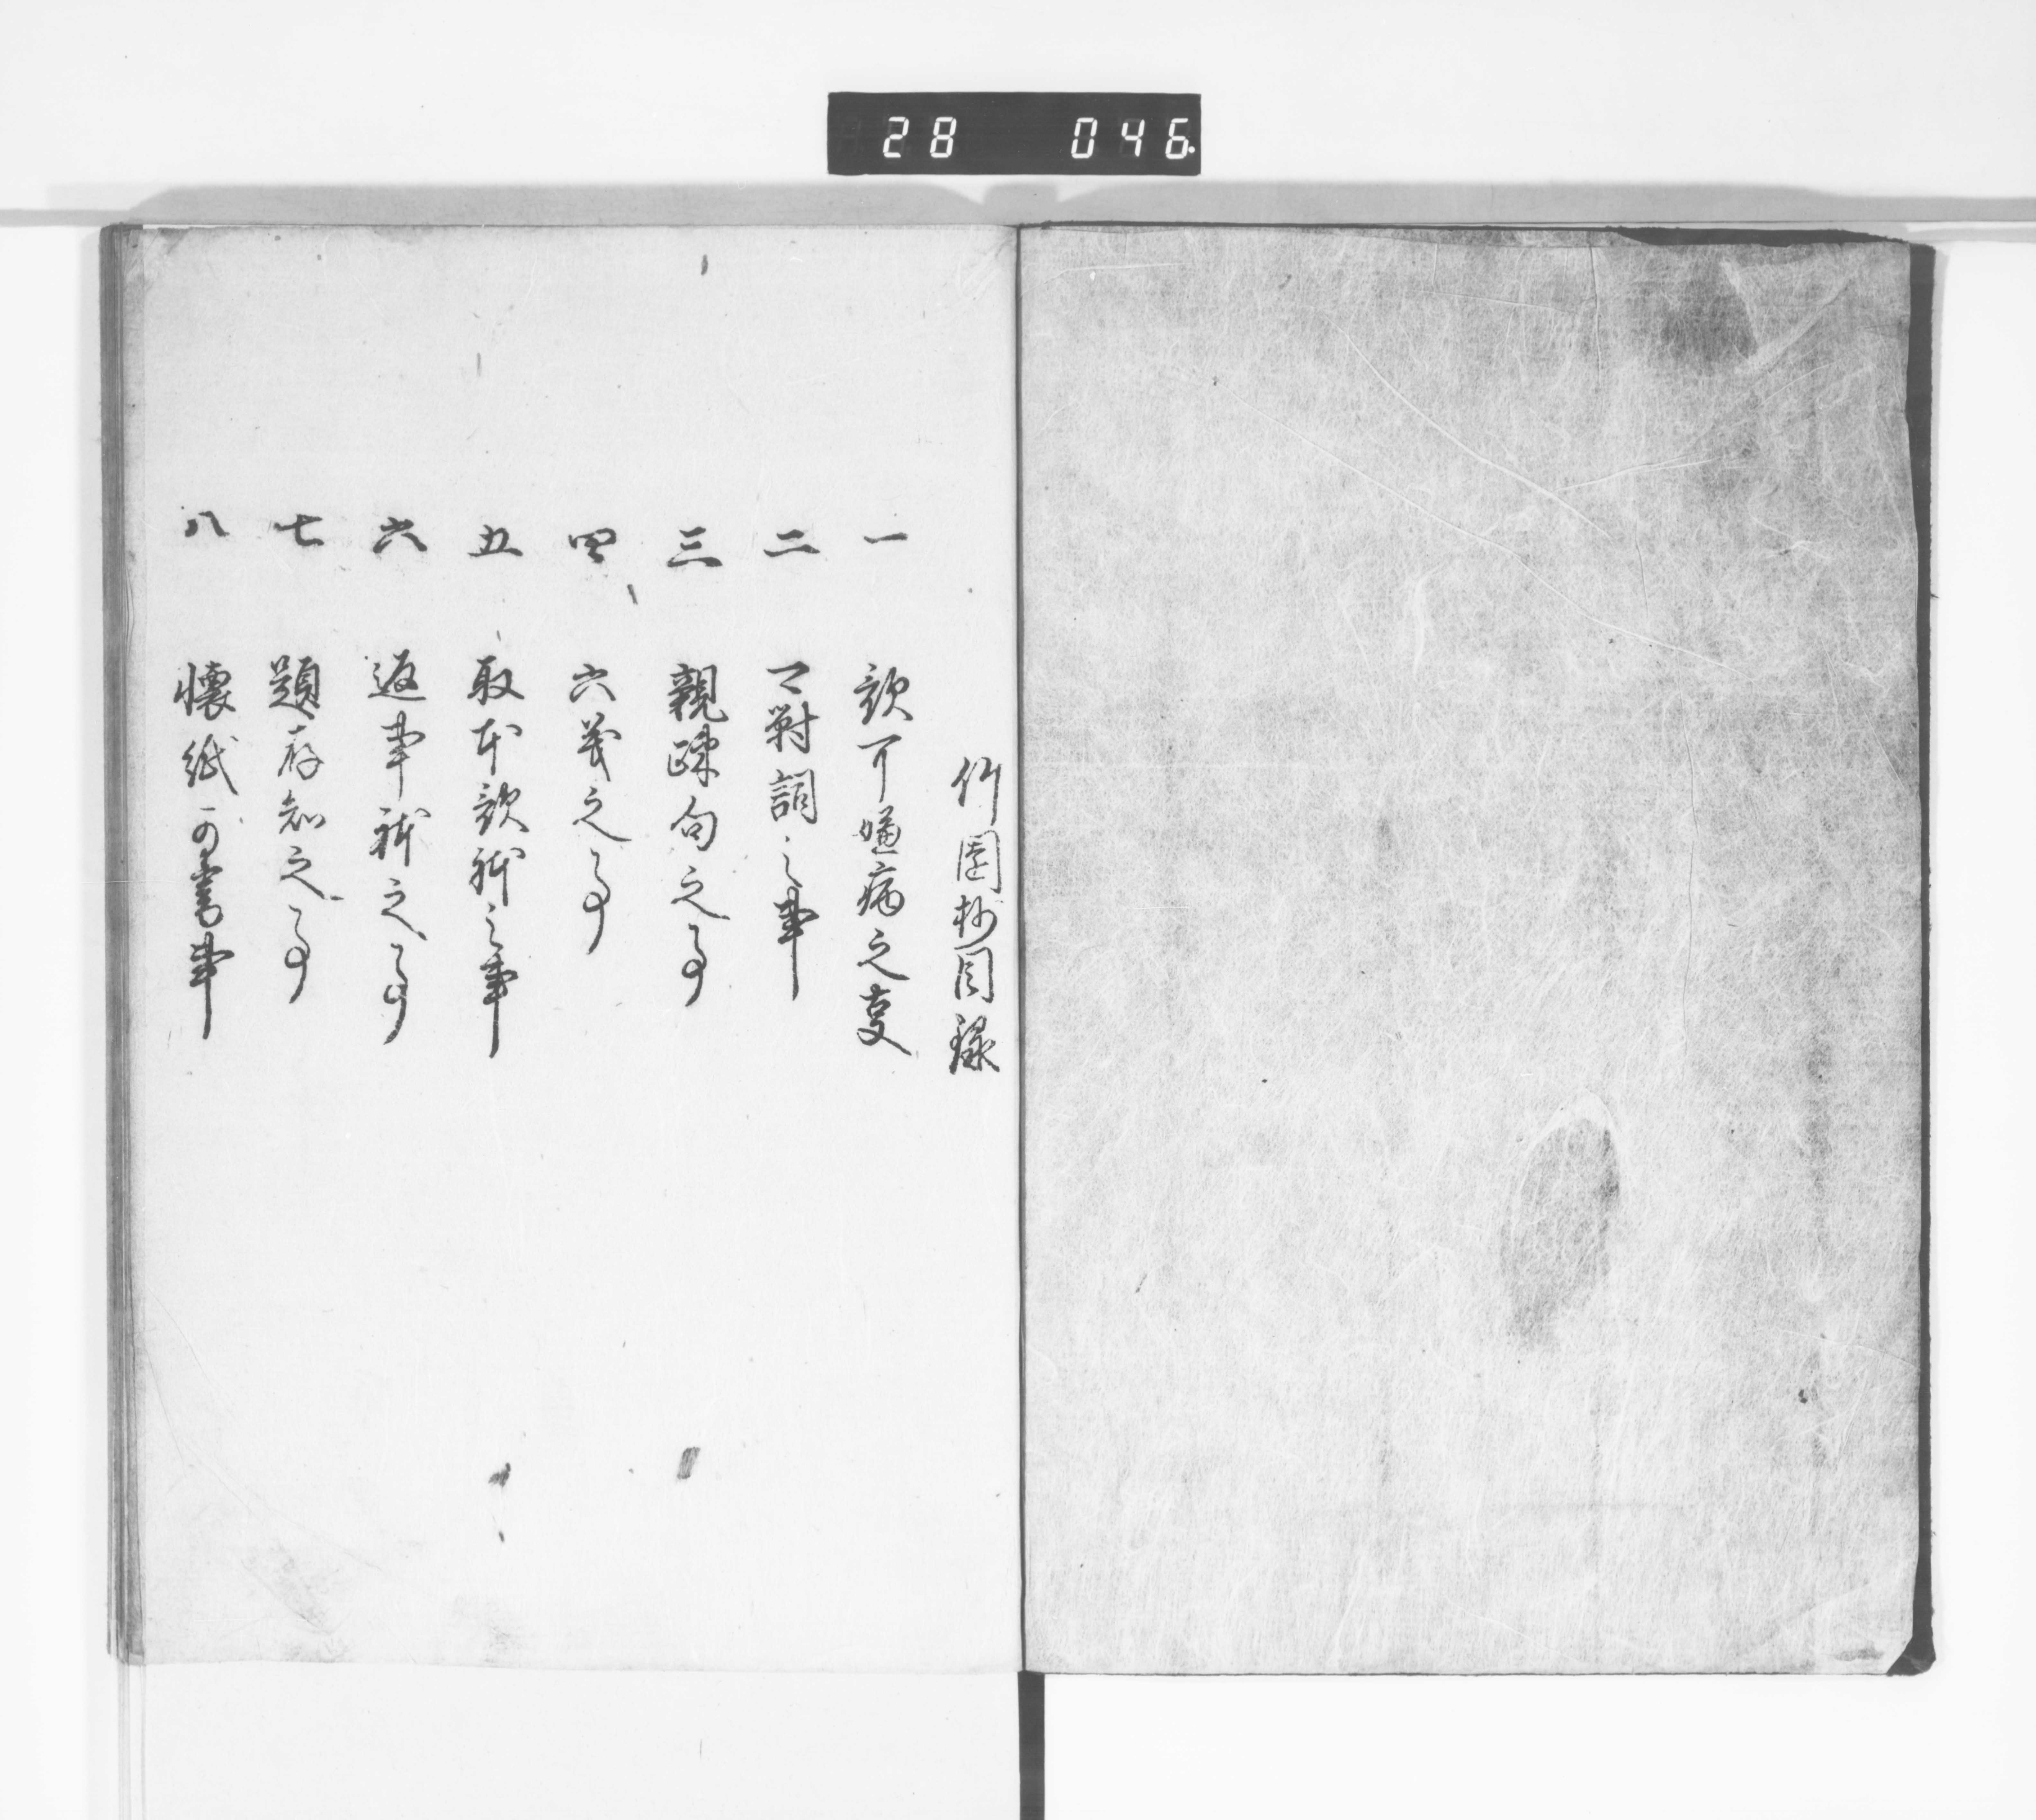 28 046
竹園抄目録
一 歌可嫌病之事
二 対詞之事
三 親踈句之事
四 六義之事
五 取本歌躰之事
六 返事躰之事
七 題存知之事
八 懐紙可書事